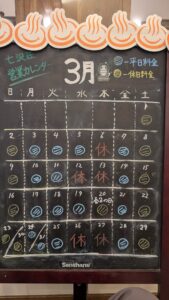 七沢荘
営業カレンダー
3月
○ー平日料金
○ー休日料金
日 月 火 水 木 金 土
1
2 3 4 5 6 7 8
休
9 10 11 12 13 14 15
休 休
16 17 18 19 20 21 22
春分の日
23 24 25 26 27 28 29
30 31
休 休